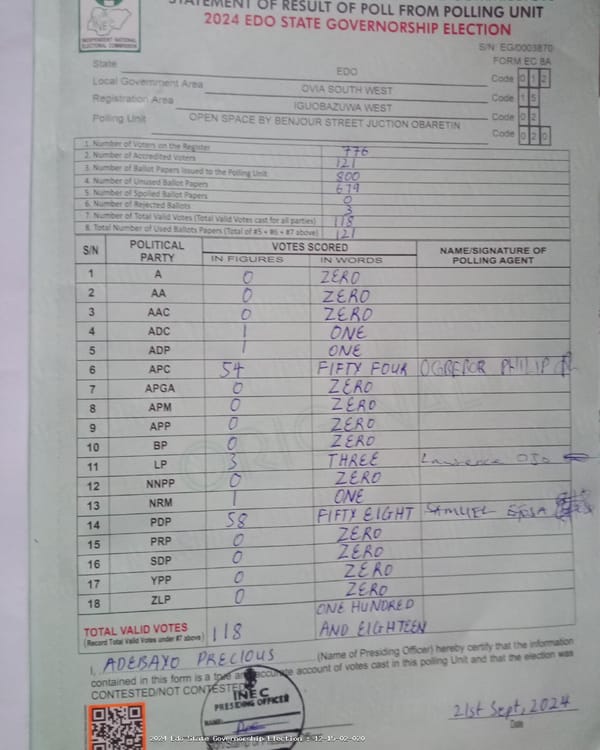 STATEMENT OF RESULT OF POLL FROM POLLING UNIT
2024 EDO STATE GOVERNORSHIP ELECTION
INEC
INDEPENDENT NATIONAL
ELECTORAL COMMISSION
S/N: EG/0003870
FORM EC 8A
State EDO Code 0 1 2
Local Government Area OVIA SOUTH WEST Code 1 5
Registration Area IGUOBAZUWA WEST Code 0 2
Polling Unit OPEN SPACE BY BENJOUR STREET JUCTION OBARETIN Code 0 2 0
1. Number of Voters on the Register 776
2. Number of Accredited Voters 121
3. Number of Ballot Papers Issued to the Polling Unit 800
4. Number of Unused Ballot Papers 679
5. Number of Spoiled Ballot Papers 0
6. Number of Rejected Ballots 3
7. Number of Total Valid Votes (Total Valid Votes cast for all parties) 118
8. Total Number of Used Ballots Papers (Total of #5 + #6 + #7 above) 121
S/N POLITICAL PARTY VOTES SCORED NAME/SIGNATURE OF POLLING AGENT
IN FIGURES IN WORDS
1 A 0 ZERO
2 AA 0 ZERO
3 AAC 0 ZERO
4 ADC 1 ONE
5 ADP 1 ONE
6 APC 54 FIFTY FOUR PHILIP
7 APGA 0 ZERO
8 APM 0 ZERO
9 APP 0 ZERO
10 BP 0 ZERO
11 LP 3 THREE Lawrence OJO
12 NNPP 0 ZERO
13 NRM 1 ONE
14 PDP 58 FIFTY EIGHT SAMUEL
15 PRP 0 ZERO
16 SDP 0 ZERO
17 YPP 0 ZERO
18 ZLP 0 ZERO
TOTAL VALID VOTES 118 ONE HUNDRED
(Record Total Valid Votes under #7 above) AND EIGHTEEN
I, ADEBAYO PRECIOUS (Name of Presiding Officer) hereby certify that the information
contained in this form is a true and accurate account of votes cast in this polling Unit and that the election was
CONTESTED/NOT CONTESTED
INEC
PRESIDING OFFICER
NAME:
21st Sept, 2024
Date
2024 Edo State Governorship Election : 12-15-02-020